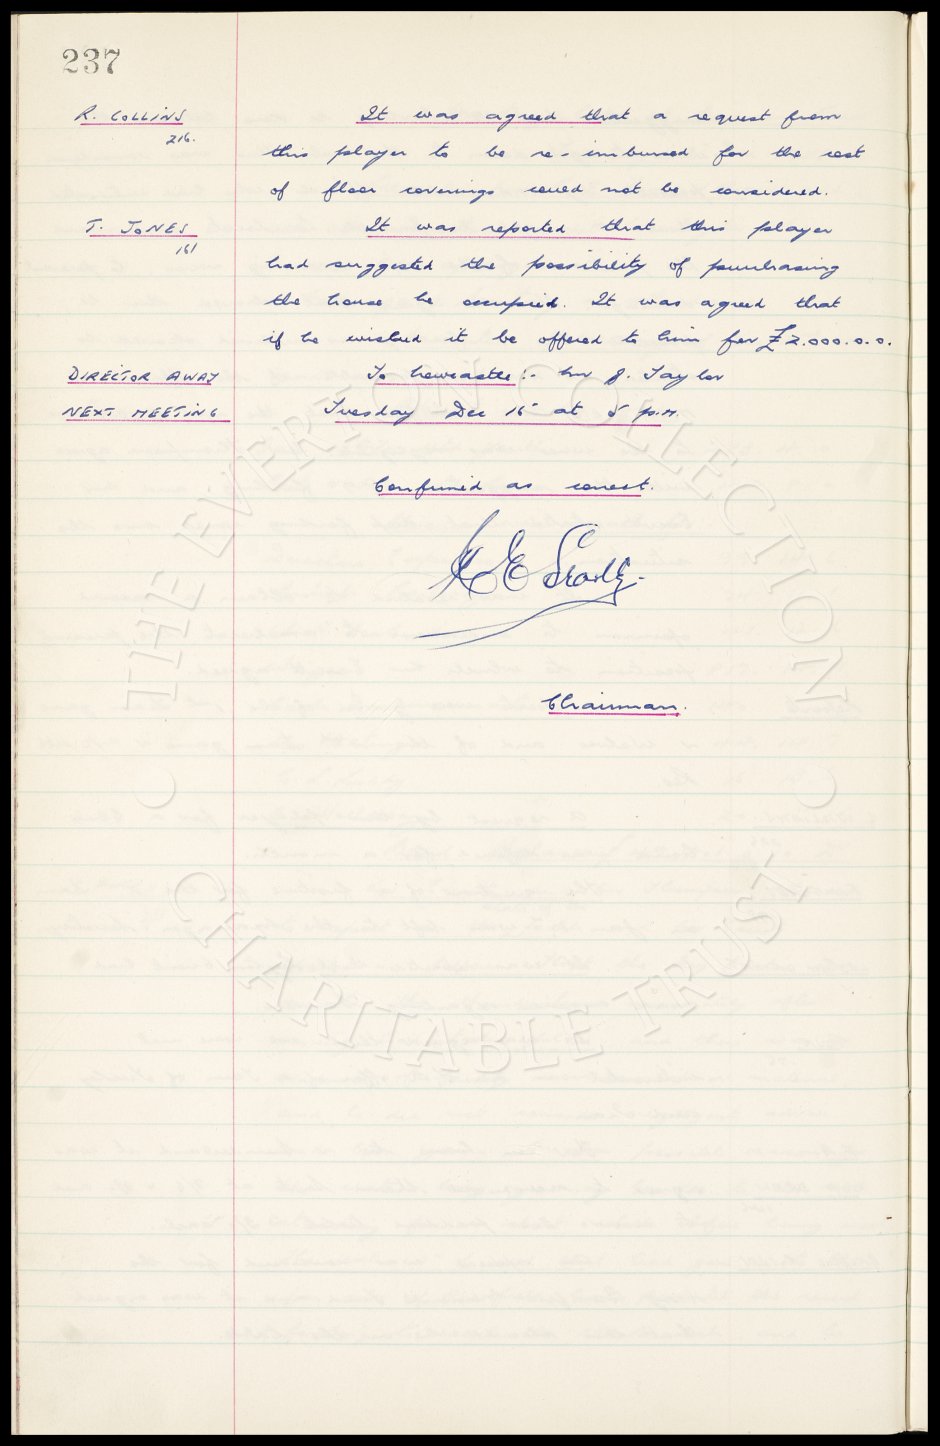 237
R. COLLINS It was agreed that a request from
216. this player to be re-imbursed for the cost
of floor coverings could not be considered.
T. JONES It was reported that this player
161 had suggested the possibility of purchasing
the house he occupied. It was agreed that
if he wished it be offered to him for £2.000.0.0.
DIRECTOR AWAY To Newcastle :- Mr J. Taylor
NEXT MEETING Tuesday Dec 15 at 5 p.m.
Confirmed as correct.
Chairman.
THE EVERTON COLLECTION
CHARITABLE TRUST